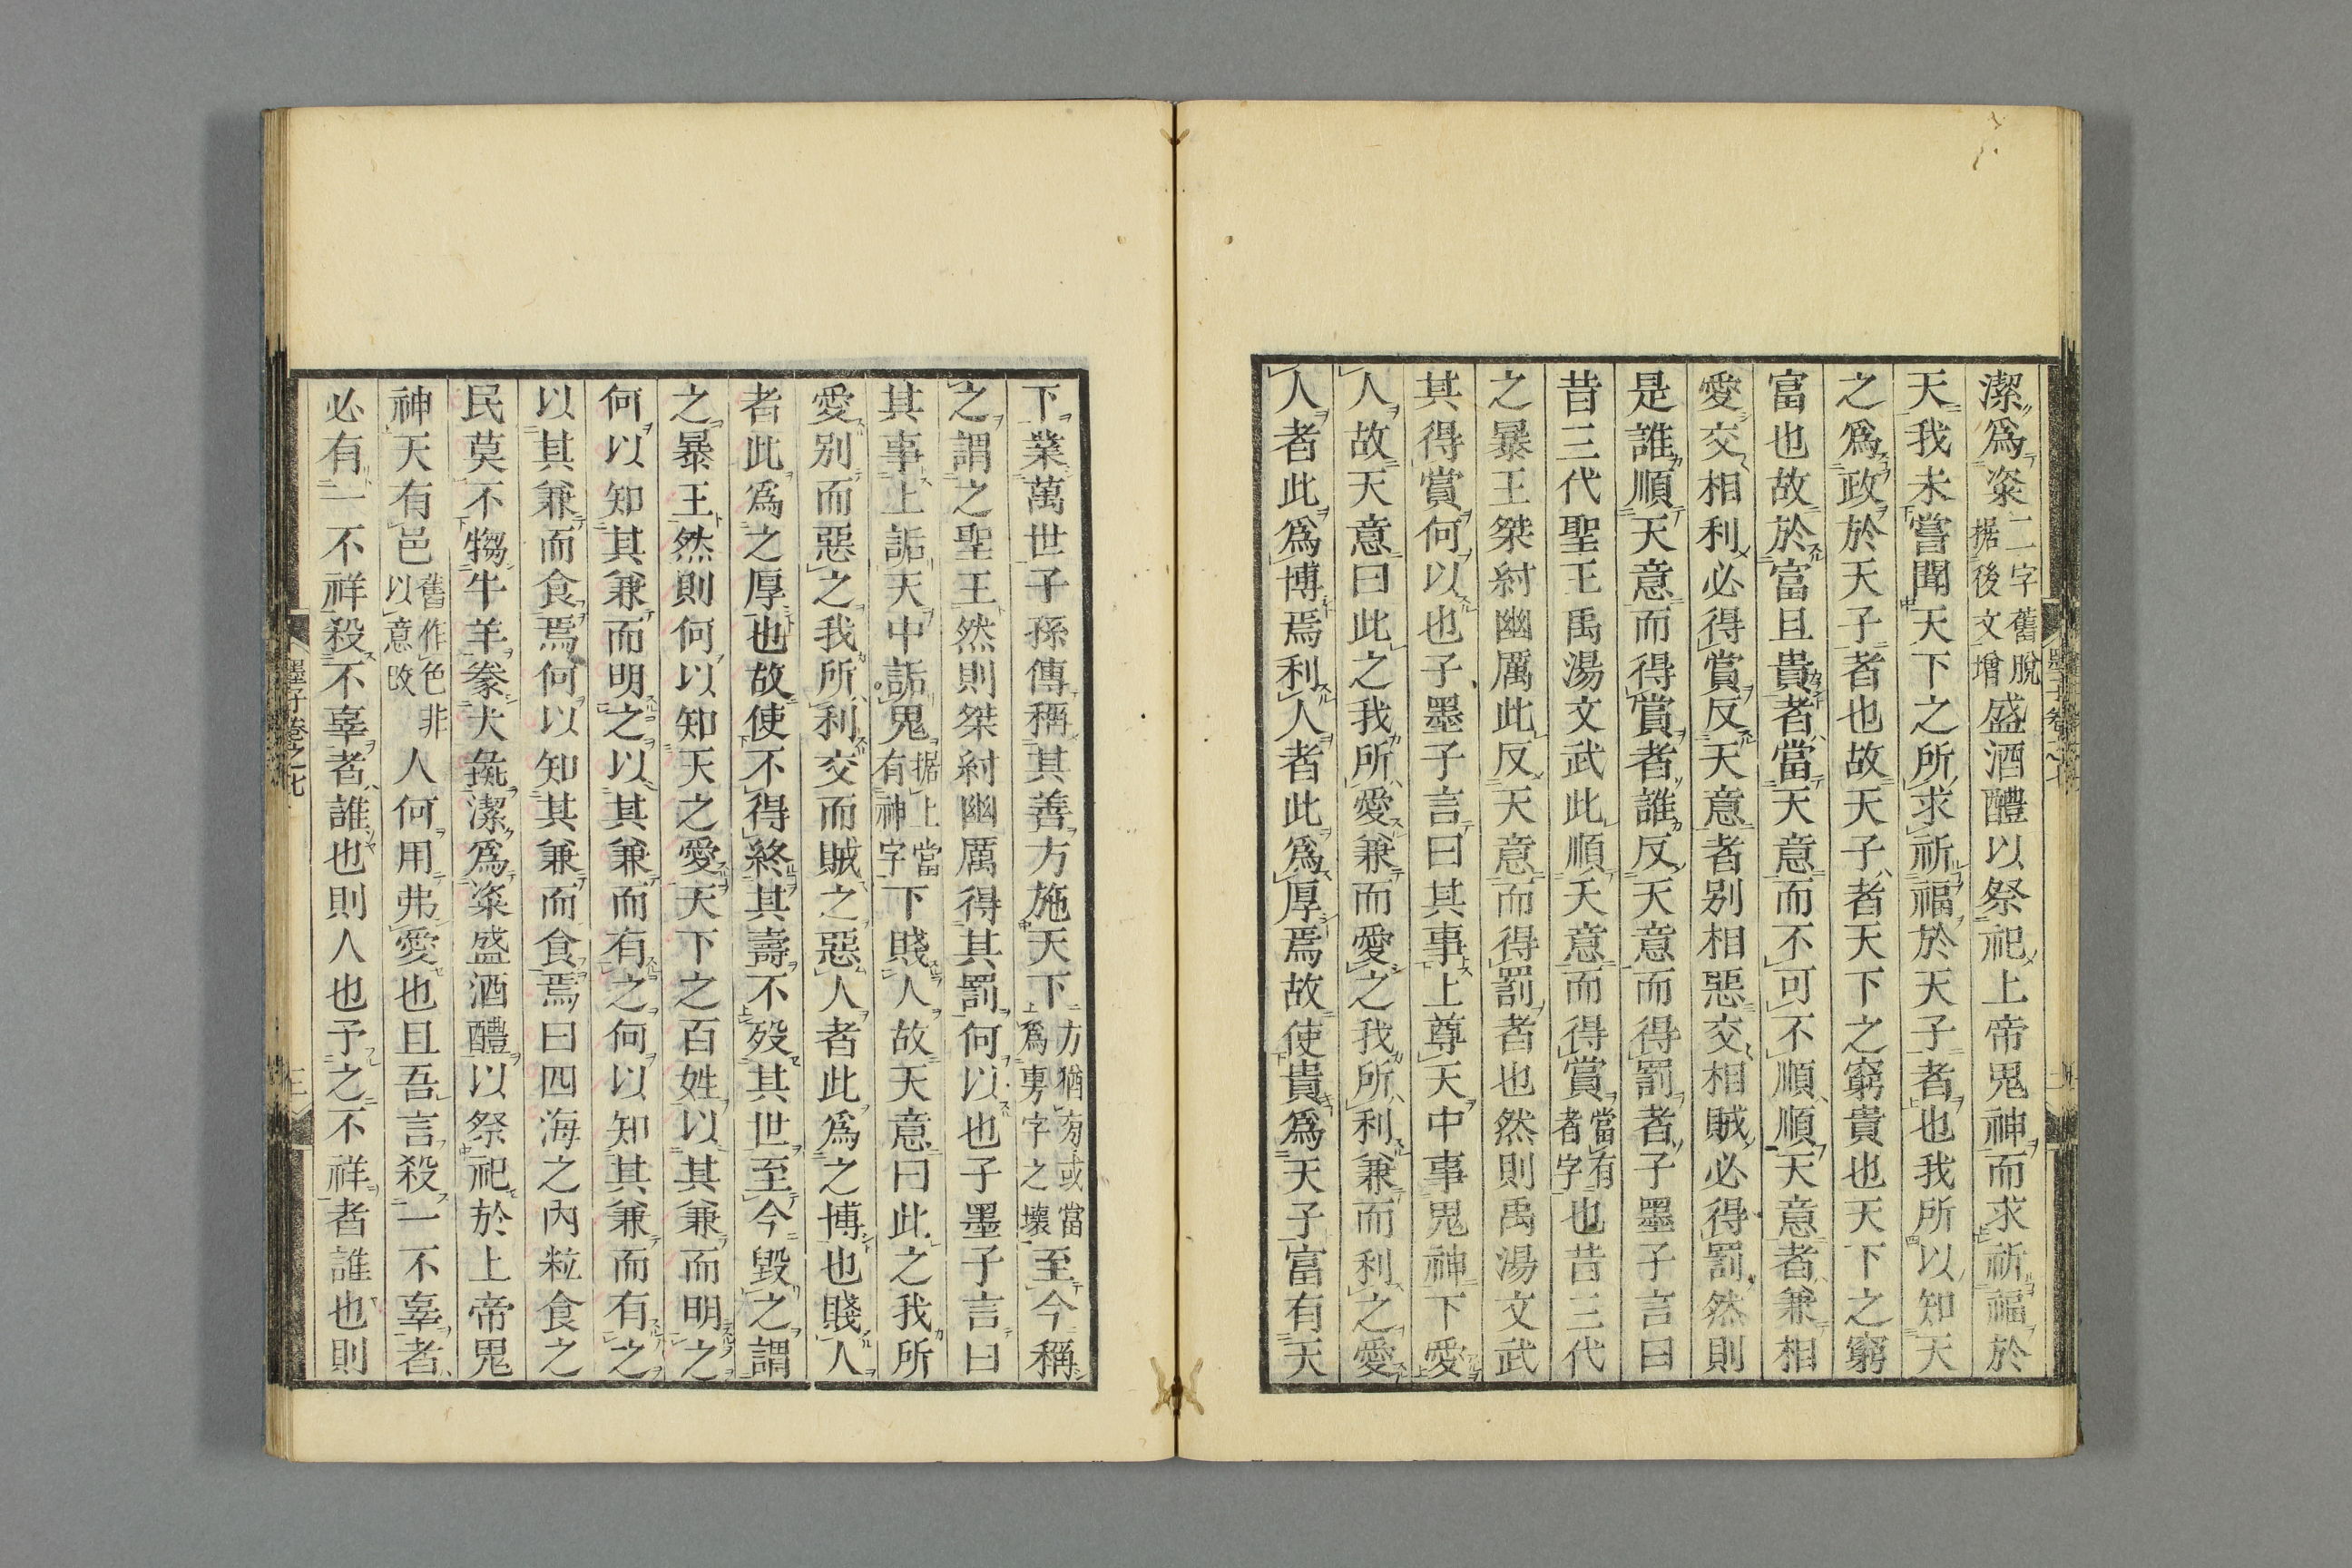 潔爲粢二字舊脫据後文增盛酒醴以祭祀上帝鬼神而求祈福於
天我未嘗聞天下之所求祈福於天子者也我所以知天
之爲政於天子者也故天子者天下之窮貴也天下之窮
富也故於富且貴者當天意而不可不順順天意者兼相
愛交相利必得賞反天意者别相惡交相賊必得罰然則
是誰順天意而得賞者誰反天意而得罰者子墨子言曰
昔三代聖王禹湯文武此順天意而得賞當有者字也昔三代
之暴王桀紂幽厲此反天意而得罰者也然則禹湯文武
其得賞何以也子墨子言曰其事上尊天中事鬼神下愛
人故天意曰此之我所愛兼而愛之我所利兼而利之愛
人者此爲博焉利人者此爲厚焉故使貴爲天子富有天
下業萬世子孫傳稱其善方施天下方猶旁或當爲旉字之壞至今稱
之謂之聖王然則桀紂幽厲得其罰何以也子墨子言曰
其事上詬天中詬鬼据上當有神字下賤人故天意曰此之我所
愛别而惡之我所利交而賊之惡人者此爲之博也賤人
者此爲之厚也故使不得終其壽不歿其世至今毀之謂
之暴王然則何以知天之愛天下之百姓以其兼而明之
何以知其兼而明之以其兼而有之何以知其兼而有之
以其兼而食焉何以知其兼而食焉曰四海之內粒食之
民莫不犓牛羊豢犬彘潔爲粢盛酒醴以祭祀於上帝鬼
神天有邑舊作色非以意改人何用弗愛也且吾言殺一不辜者
必有一不祥殺不辜者誰也則人也予之不祥者誰也則
墨子卷之七
三